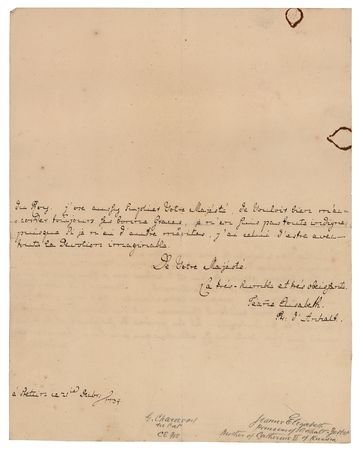 du Roy, j'ose aussy suplier Votre Majesté, de vouloir bien m'ac-
corder toujours ses bonnes Graces, je n'en suis pas toute indigne
puisque si je n'ai d'autre mérites, j'ai celui d'estre avec
toute la Devotion imaginable.
De Votre Majesté
La très-humble et très obeissante
Jeanne Elisabeth.
Pr. d'Anhalt.
à Stettin ce 21
G. Charavay
Jeanne Elizabeth
Princess of Anhalt-Zerbst
Mother of Catherine II of Russia